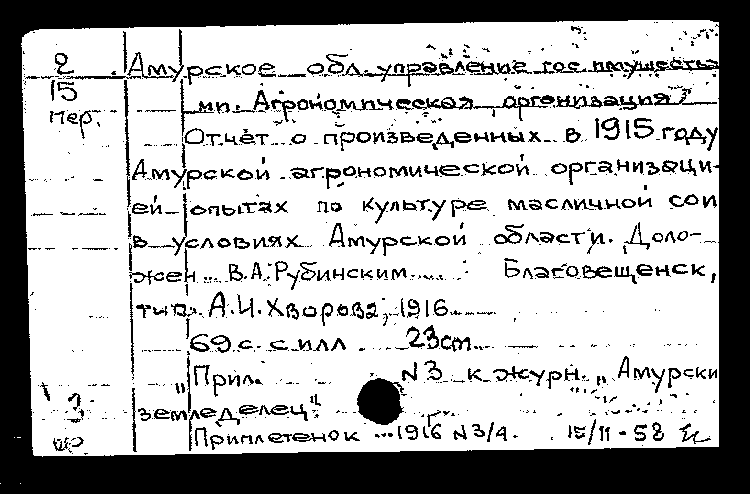 2 Амурское обл. управление гос. имущества
15 ми. Агрономическая организация.
пер. Отчет о произведенных в 1915 году
Амурской агрономической организаци-
ей опытах по культуре масличной сои
в условиях Амурской области. Доло-
жен В.А.Рубинским. Благовещенск,
тип. А.И.Хворова, 1916.
69 с. с илл. 23см.
"Прил. N3 к журн. „Амурски
3 земледелец".
Приплетенок 1916 N3/4. 15/II-58